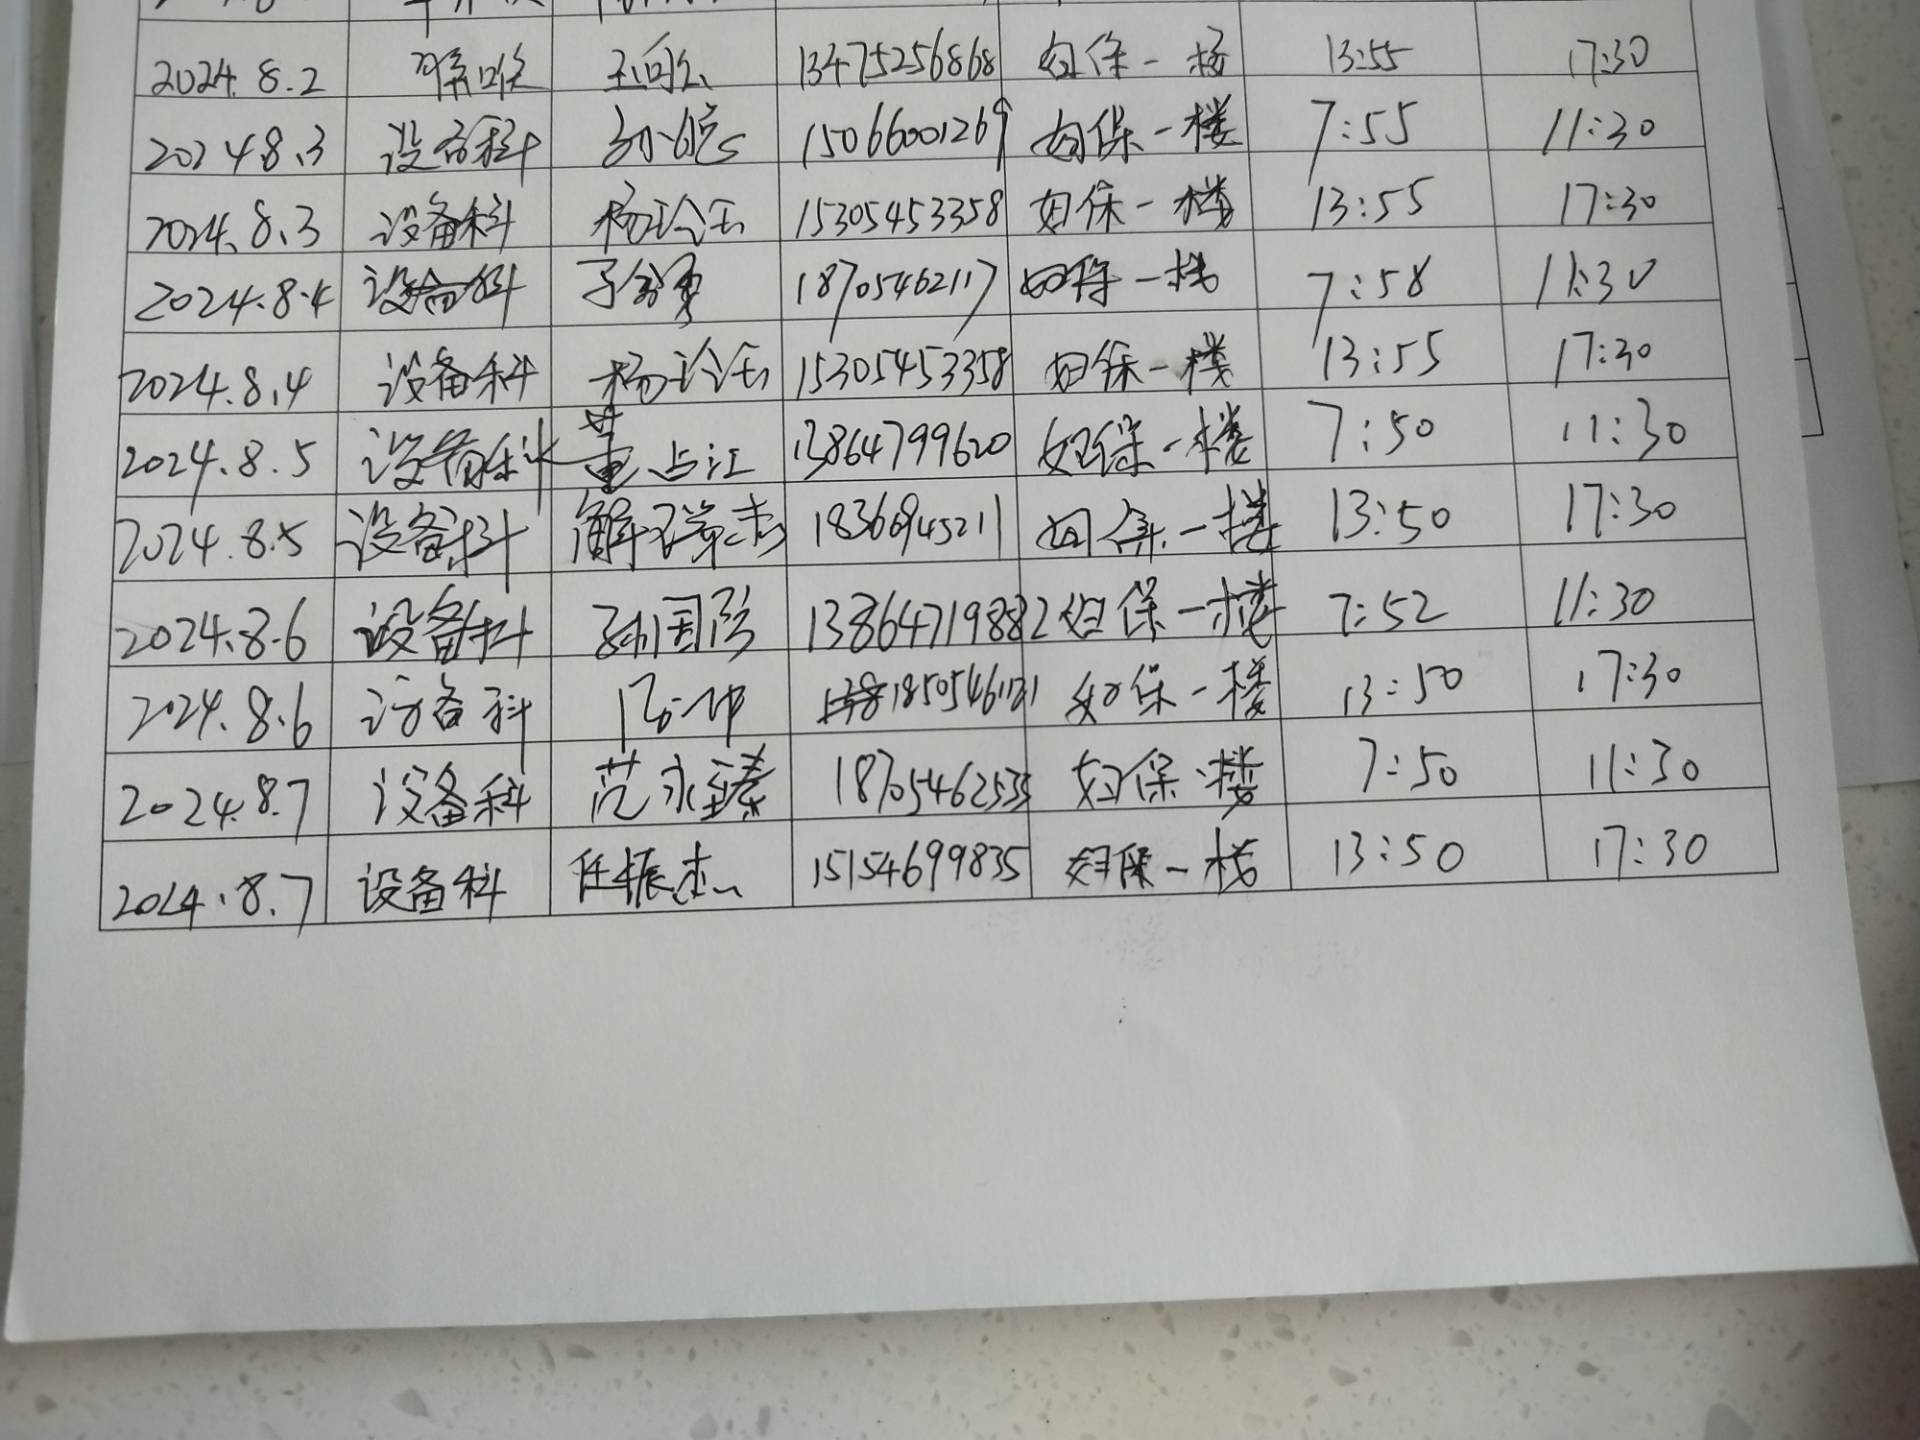 2024.8.2 13475256868 妇保一楼 13:55 17:30
2024.8.3 设备科 15066001269 妇保一楼 7:55 11:30
2024.8.3 设备科 杨玲玉 15305453358 妇保一楼 13:55 17:30
2024.8.4 设备科 18705462117 妇保一楼 7:58 11:30
2024.8.4 设备科 杨玲玉 15305453358 妇保一楼 13:55 17:30
2024.8.5 设备科 董占江 13864799620 妇保一楼 7:50 11:30
2024.8.5 设备科 18366945211 妇保一楼 13:50 17:30
2024.8.6 设备科 13864719882 妇保一楼 7:52 11:30
2024.8.6 设备科 妇保一楼 13:50 17:30
2024.8.7 设备科 范永臻 妇保一楼 7:50 11:30
2024.8.7 设备科 任振杰 15154699835 妇保一楼 13:50 17:30